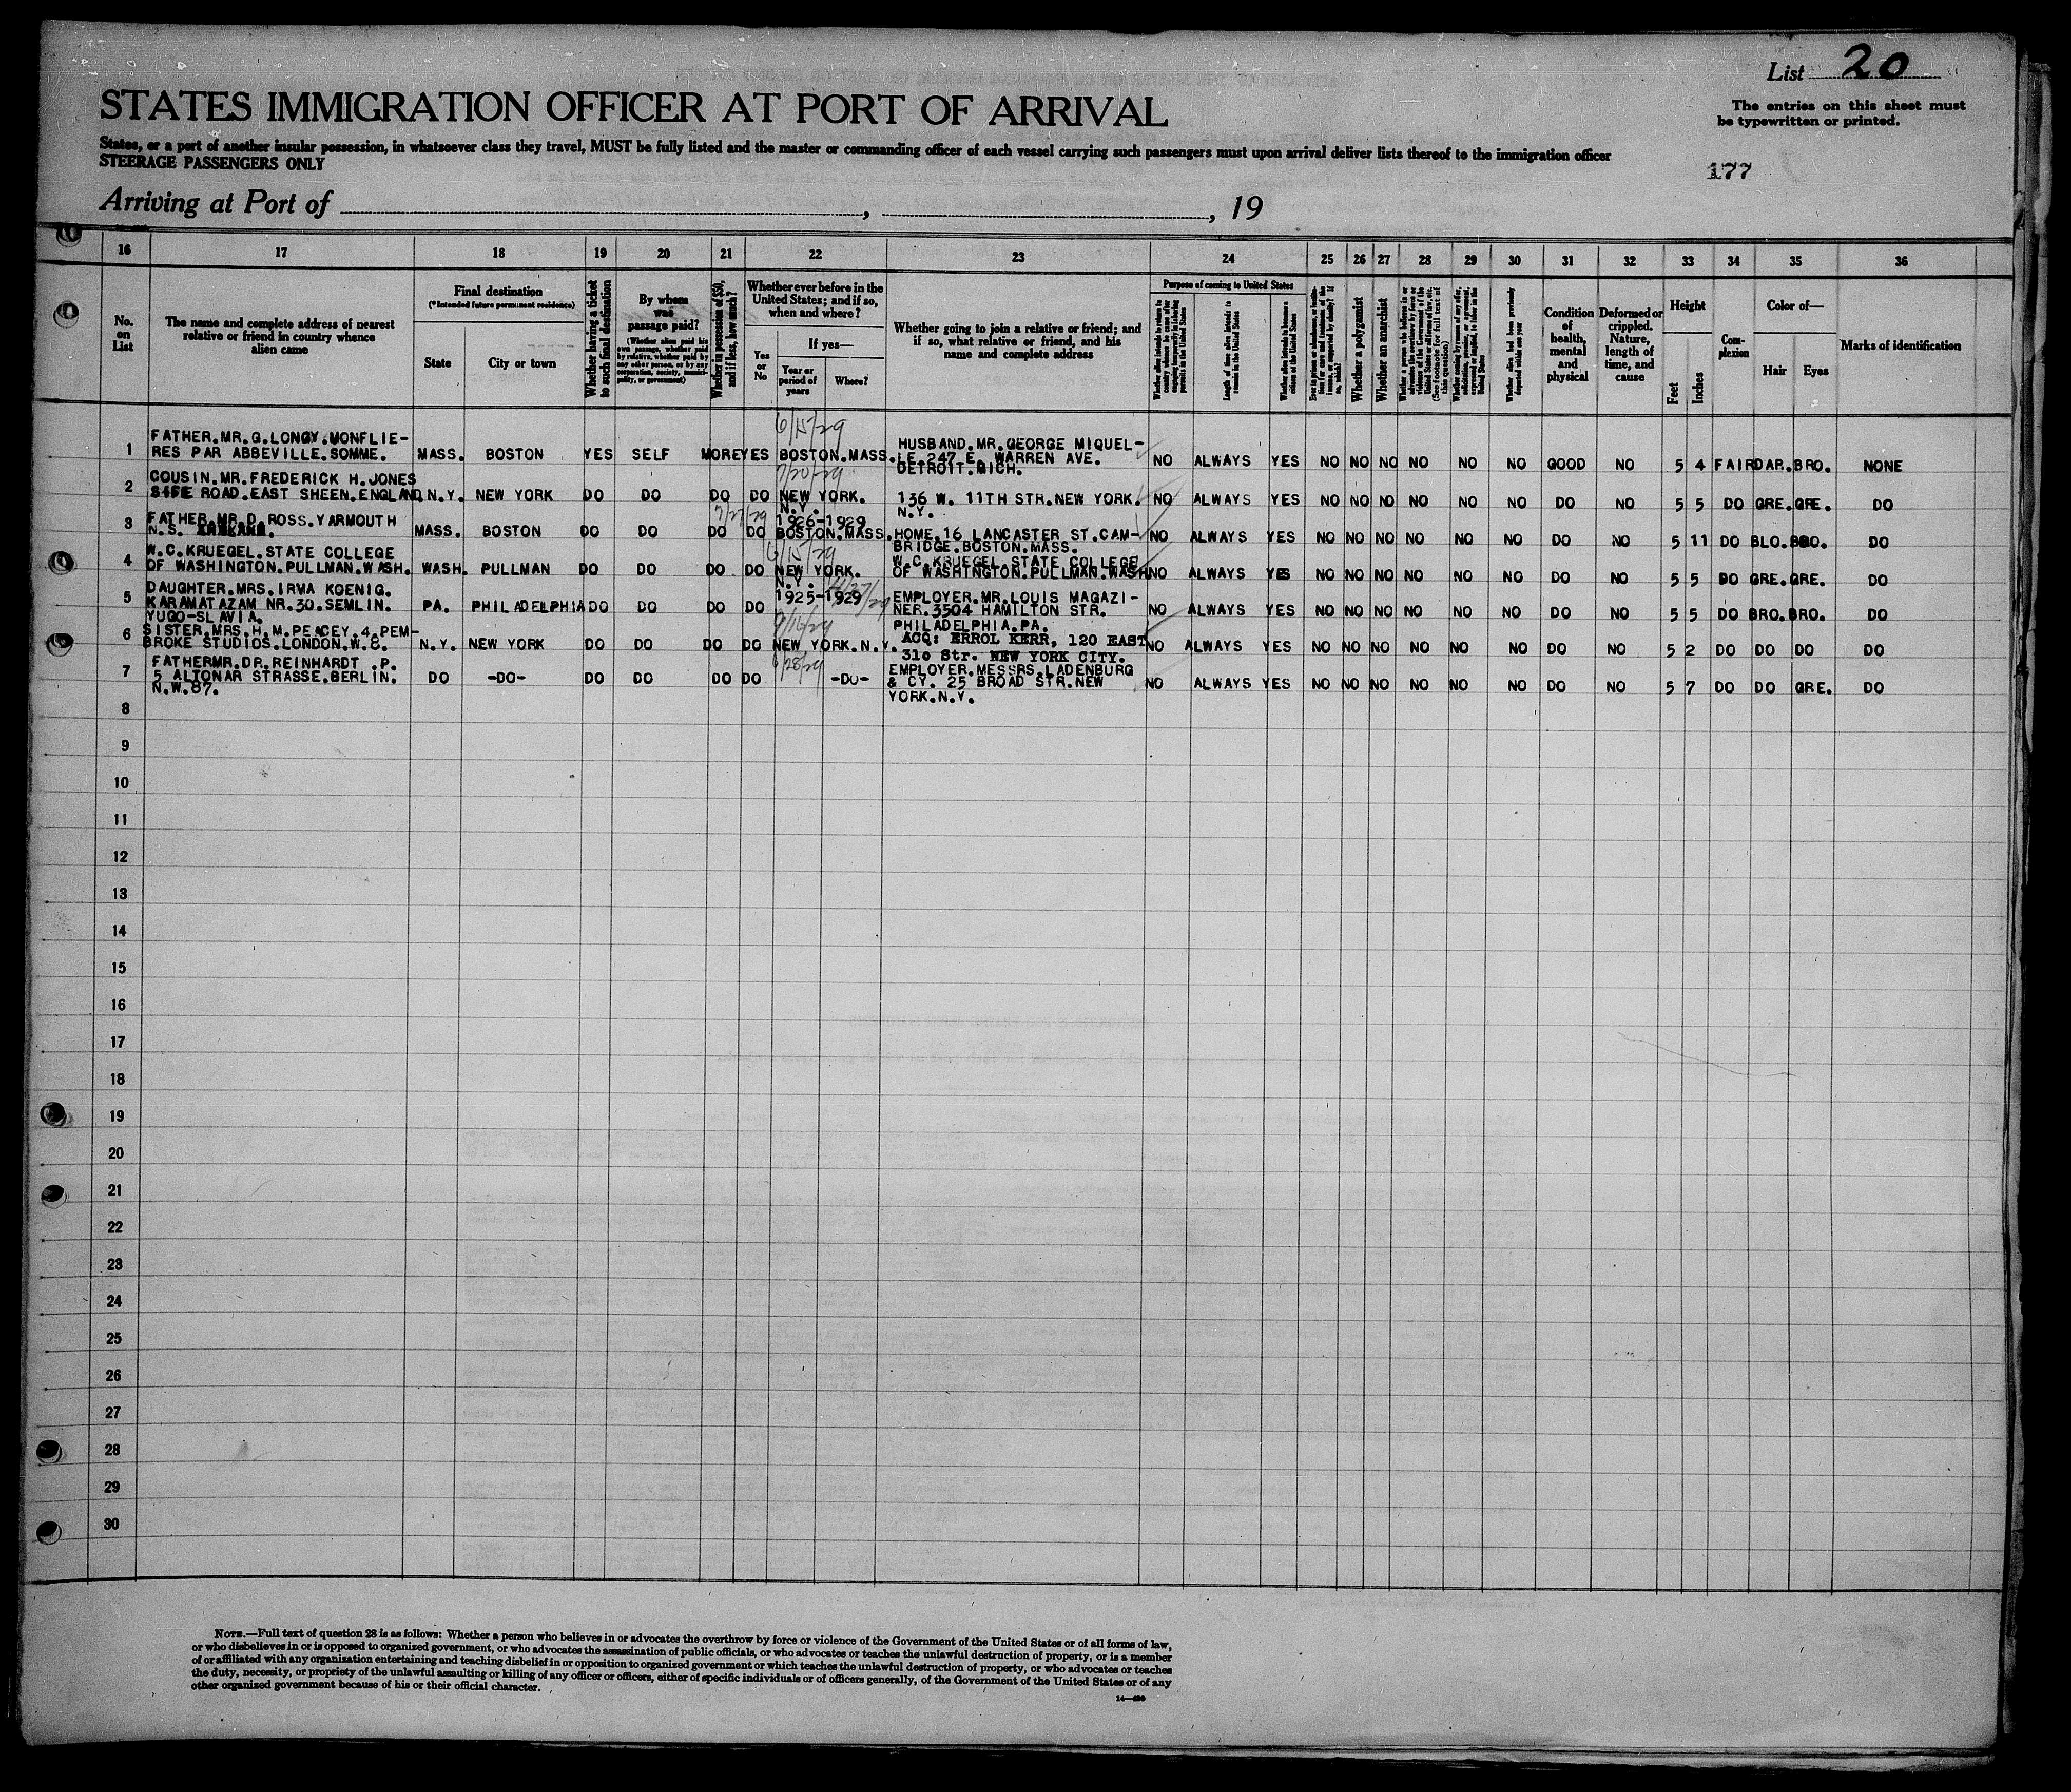 List 20
The entries on this sheet must
be typewritten or printed.
STATES IMMIGRATION OFFICER AT PORT OF ARRIVAL
States, or a port of another insular possession, in whatsoever class they travel, MUST be fully listed and the master or commanding officer of each vessel carrying such passengers must upon arrival deliver lists thereof to the immigration officer
STEERAGE PASSENGERS ONLY
177
Arriving at Port of , , 19
16 17 18 19 20 21 22 23 24 25 26 27 28 29 30 31 32 33 34 35 36
No. on List
The name and complete address of nearest relative or friend in country whence alien came
Final destination
(*Intended future permanent residence)
State
City or town
Whether having a ticket to such final destination
By whom was passage paid?
(Whether alien paid his own passage, whether paid by relative, whether paid by any other person, or by any corporation, society, municipality, or government)
Whether in possession of $50, and if less, how much?
Whether ever before in the United States; and if so, when and where?
Yes or No
If yes—
Year or period of years
Where?
Whether going to join a relative or friend; and if so, what relative or friend, and his name and complete address
Purpose of coming to United States
Length of time alien intends to remain in the United States
Whether alien intends to become a citizen of the United States
Whether a polygamist
Whether an anarchist
Whether alien had been previously deported within one year
Condition of health, mental and physical
Deformed or crippled. Nature, length of time, and cause
Height
Feet
Inches
Complexion
Color of—
Hair
Eyes
Marks of identification
6/15/29
1 FATHER.MR.G.LONGY.MONFLIE-
RES PAR ABBEVILLE.SOMME. MASS. BOSTON YES SELF MORE YES BOSTON.MASS. HUSBAND.MR.GEORGE MIQUEL-
LE.247 E. WARREN AVE.
DETROIT.MICH. NO ALWAYS YES NO NO NO NO NO NO GOOD NO 5 4 FAIR DAR. BRO. NONE
2 COUSIN.MR.FREDERICK H.JONES
ROAD.EAST SHEEN.ENGLAND N.Y. NEW YORK DO DO DO DO NEW YORK.
N.Y. 136 W. 11TH STR.NEW YORK.
N.Y. NO ALWAYS YES NO NO NO NO NO NO DO NO 5 5 DO GRE. GRE. DO
7/27/29
3 FATHER.MR.D.ROSS.YARMOUTH
N.S. MASS. BOSTON DO DO DO DO 1926-1929
BOSTON.MASS. HOME.16 LANCASTER ST.CAM-
BRIDGE.BOSTON.MASS. NO ALWAYS YES NO NO NO NO NO NO DO NO 5 11 DO BLO. BRO. DO
6/15/29
4 W.C.KRUEGEL.STATE COLLEGE
OF WASHINGTON.PULLMAN.WASH. WASH. PULLMAN DO DO DO DO NEW YORK.
N.Y. W.C.KRUEGEL.STATE COLLEGE
OF WASHINGTON.PULLMAN.WASH NO ALWAYS YES NO NO NO NO NO NO DO NO 5 5 DO GRE. GRE. DO
5 DAUGHTER.MRS.IRMA KOENIG.
KARAMATAZAM NR.30.SEMLIN.
YUGO-SLAVIA. PA. PHILADELPHIA DO DO DO DO 1925-1929 EMPLOYER.MR.LOUIS MAGAZI-
NER.3504 HAMILTON STR.
PHILADELPHIA.PA. NO ALWAYS YES NO NO NO NO NO NO DO NO 5 5 DO BRO. BRO. DO
6 SISTER.MRS.H.M.PEACEY.4.PEM-
BROKE STUDIOS.LONDON.W.8. N.Y. NEW YORK DO DO DO DO NEW YORK.N.Y. ACQ: ERROL KERR, 120 EAST
31o Str. NEW YORK CITY. NO ALWAYS YES NO NO NO NO NO NO DO NO 5 2 DO DO DO DO
7 FATHERMR.DR.REINHARDT .P.
5 ALTONAR STRASSE.BERLIN.
N.W.87. DO -DO- DO DO DO DO -DO- EMPLOYER.MESSRS.LADENBURG
& CY. 25 BROAD STR.NEW
YORK.N.Y. NO ALWAYS YES NO NO NO NO NO NO DO NO 5 7 DO DO GRE. DO
8
9
10
11
12
13
14
15
16
17
18
19
20
21
22
23
24
25
26
27
28
29
30
NOTE.—Full text of question 28 is as follows: Whether a person who believes in or advocates the overthrow by force or violence of the Government of the United States or of all forms of law,
or who disbelieves in or is opposed to organized government, or who advocates the assassination of public officials, or who advocates or teaches the unlawful destruction of property, or is a member
of or affiliated with any organization entertaining and teaching disbelief in or opposition to organized government or which teaches the unlawful destruction of property, or who advocates or teaches
the duty, necessity, or propriety of the unlawful assaulting or killing of any officer or officers, either of specific individuals or of officers generally, of the Government of the United States or of any
other organized government because of his or their official character.